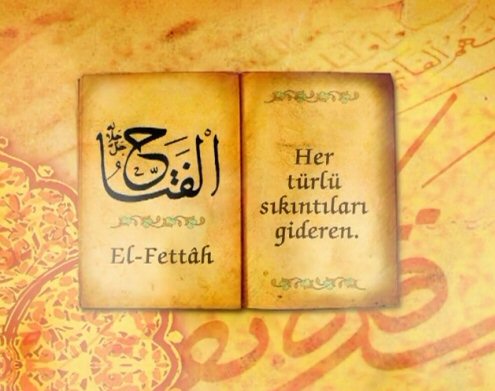 الْفَتَّاحُ
جل جلاله
El-Fettâh
Her
türlü
sıkıntıları
gideren.